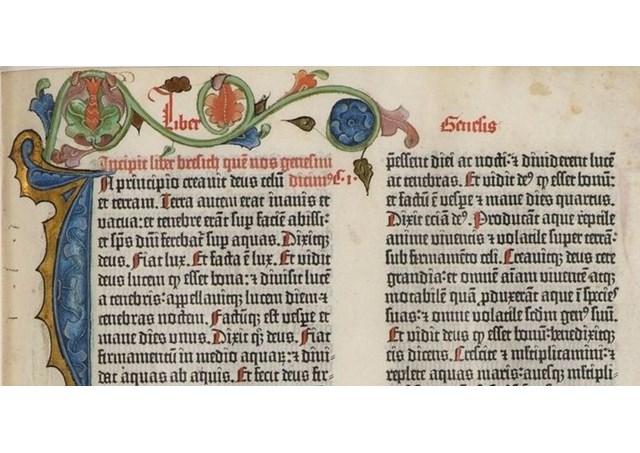 Liber
Genesis
Incipit liber bresich quē nos genesim
In principio creavit deus celū dicimꝰ. c. 1.
et terram. Terra autem erat inanis et
vacua: et tenebre erāt sup faciē abissi:
et spūs dñi ferebat̄ sup aquas. Dixitqꝫ
deus. Fiat lux. Et facta ē lux. Et vidit
deus lucem qꝫ esset bona: ⁊ divisit lucē
a tenebris: appellavitqꝫ lucem diem ⁊
tenebras noctem. Factūqꝫ est vespe et
mane dies unus. Dixit qꝫ deus. Fiat
firmamentū in medio aquaꝝ: ⁊ divi-
dat aquas ab aquis. Et fecit deus fir-
p̄essent diei ac nocti: ⁊ dividerent lucē
ac tenebras. Et vidit deꝰ qꝫ esset bonū:
et factū ē vespe ⁊ mane dies quartus.
Dixit eciā deꝰ. Producant aque reptile
anime viventis ⁊ volatile super terrā:
sub firmamēto celi. Creavitqꝫ deus cete
grandia: et omnē aīam viventē atqꝫ
motabilē quā ꝓduxerāt aque ī species
suas: ⁊ omne volatile scdm genꝰ suū.
Et vidit deus qꝫ esset bonū: benedixitqꝫ
eis dicens. Crescite ⁊ mltiplicamini: ⁊
replete aquas maris: avesqꝫ mltipli-